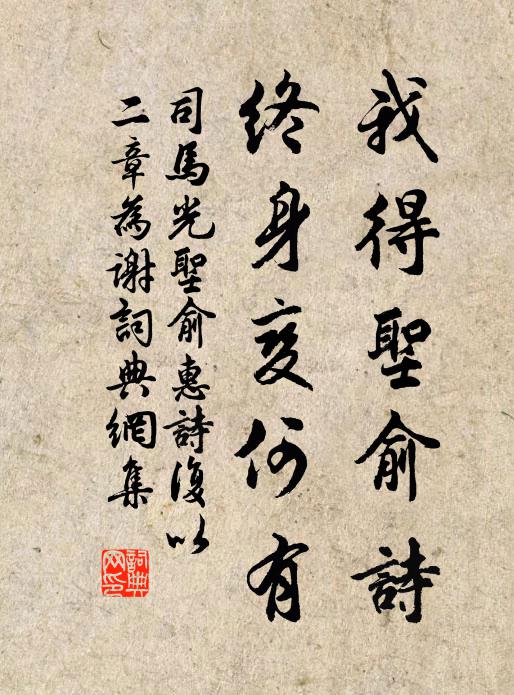 我得聖俞詩
終身変何有
司馬光聖俞惠詩復以
二章為謝詞典網集
詞典
网印